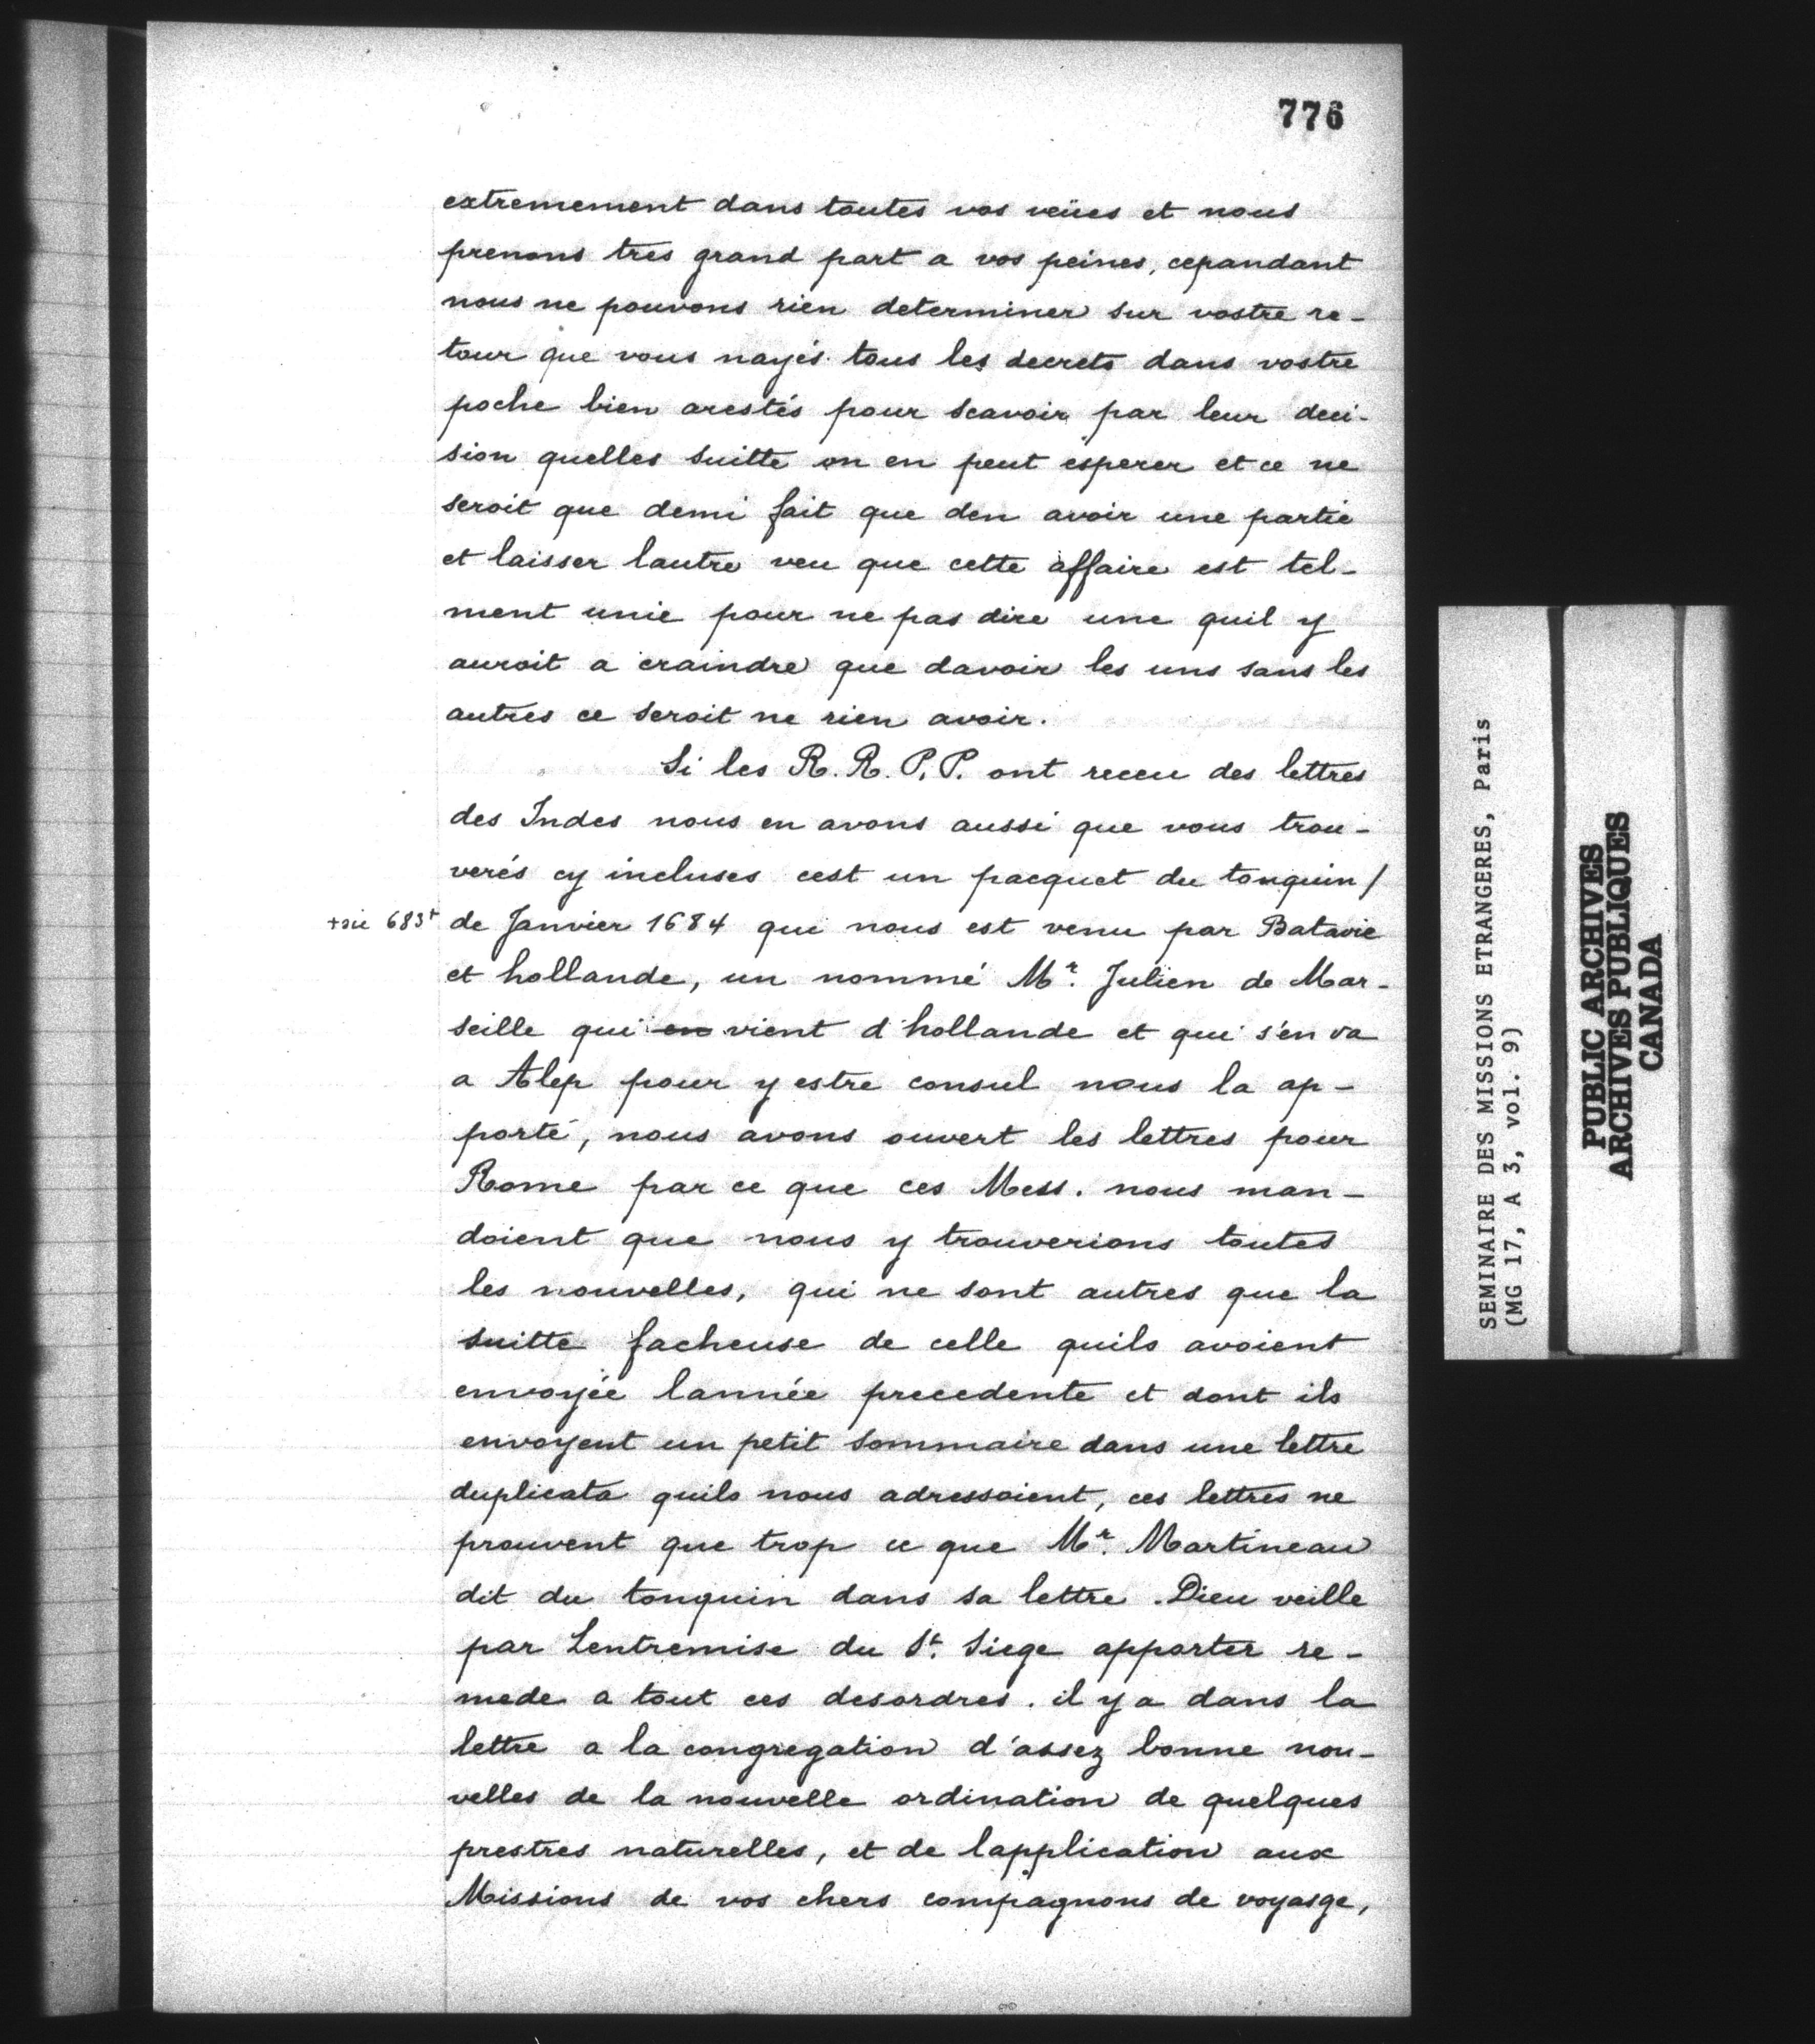 776
extremement dans toutes vos veües et nous
prenons tres grand part a vos peines, cepandant
nous ne pouvons rien determiner sur vostre re-
tour que vous nayés tous les decrets dans vostre
poche bien arestés pour scavoir par leur deci-
sion quelles suitte on en peut esperer et ce ne
seroit que demi fait que den avoir une partie
et laisser lautre veu que cette affaire est tel-
ment unie pour ne pas dire une quil y
auroit a craindre que davoir les uns sans les
autres ce seroit ne rien avoir.
Si les R. R. P. P. ont receu des lettres
des Indes nous en avons aussi que vous trou-
verés cy incluses cest un pacquet du tonquin /
+sic 683+ de Janvier 1684 qui nous est venu par Batavie
et hollande, un nommé Mr. Julien de Mar-
seille qui en vient d'hollande et qui s'en va
a Alep pour y estre consul nous la ap-
porté, nous avons ouvert les lettres pour
Rome par ce que ces Mess. nous man-
doient que nous y trouverions toutes
les nouvelles, qui ne sont autres que la
suitte facheuse de celle quils avoient
envoyée lannée precedente et dont ils
envoyent un petit sommaire dans une lettre
duplicata quils nous adressoient, ces lettres ne
prouvent que trop ce que Mr. Martineau
dit du tonquin dans sa lettre. Dieu veille
par Lentremise du St. Siege apporter re-
mede a tout ces desordres. il y a dans la
lettre a la congregation d'assez bonne nou-
velles de la nouvelle ordination de quelques
prestres naturelles, et de lapplication aux
Missions de vos chers compagnons de voyasge,
SEMINAIRE DES MISSIONS ETRANGERES, Paris
(MG 17, A 3, vol. 9)
PUBLIC ARCHIVES
ARCHIVES PUBLIQUES
CANADA